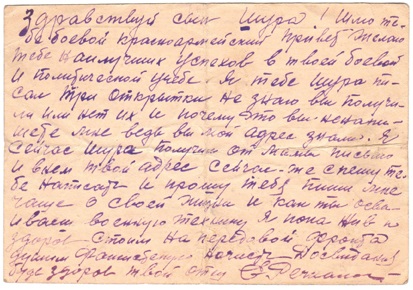 Здравствуй сын Шура! Шлю те-
бе боевой красноармейский привет желаю
тебе наилучших успехов в твоей боевой
и политической учебе. Я тебе Шура пи-
сал три открытки не знаю вы получи-
ли или нет их и почему это вы ненапи-
шете мне ведь вы мой адрес знали. Я
сейчас Шура получил от мамы письмо
и внем твой адрес сейчас-же спешу те-
бе написать и прошу тебя пиши мне
чаще о своей жизни и как ты осва-
иваеш военную технику Я пока жив и
здоров стоим на передовой фронта
фашистскую Досвидания
будь здоров твой отец